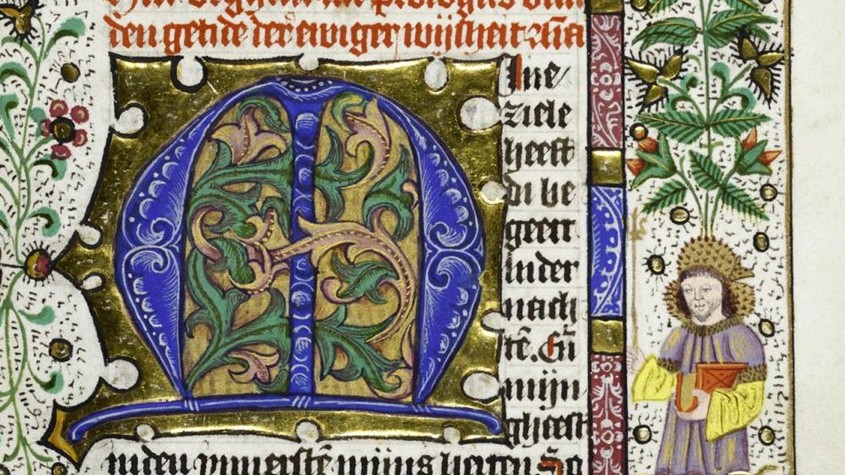 prologus van
den getide der ewiger wijsheit
MIne
ziele
heeft
di be
geert
inder
nach
tē. Eñ
mijn
gheest
inden ynnerstē mijns herten. So